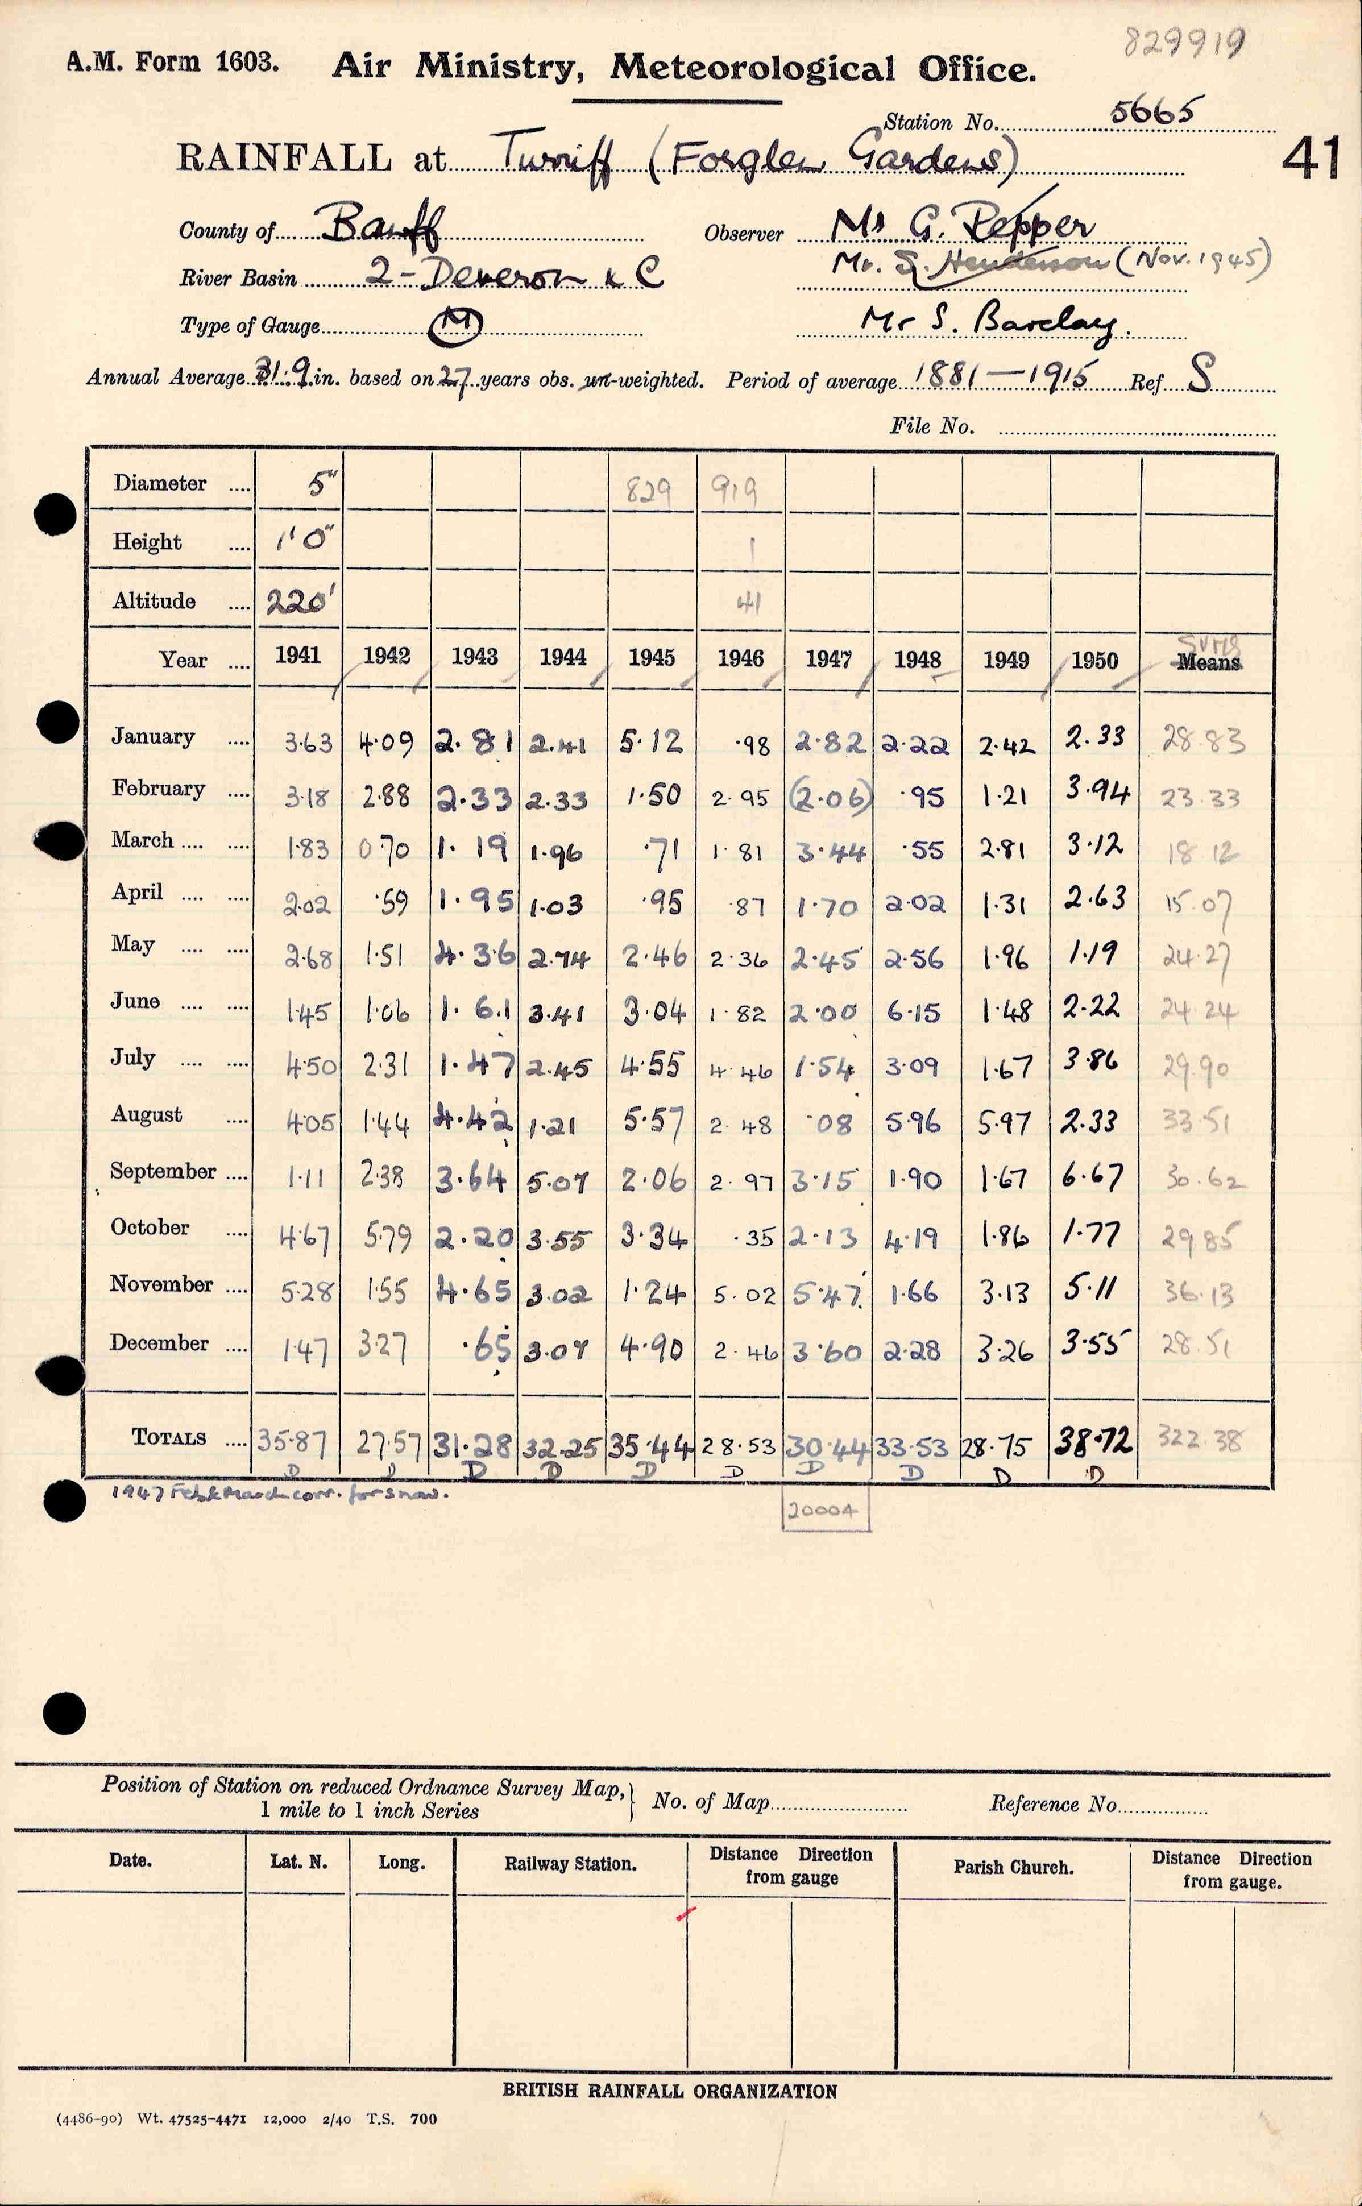 829919
A.M. Form 1603. Air Ministry, Meteorological Office.
Station No. 5665
RAINFALL at Turriff (Forglen Gardens) 41
County of Banff Observer Mr G. Pepper
Mr. S. Henderson (Nov. 1945)
River Basin 2-Deveron & C
Type of Gauge M Mr S. Barclay.
Annual Average 31.9 in. based on 27 years obs. un-weighted. Period of average 1881-1915 Ref. S
File No.
Diameter .... 5" 829 919
Height .... 1'0" 1
Altitude .... 220' 41
Sums
Year .... 1941 1942 1943 1944 1945 1946 1947 1948 1949 1950 Means
January .... 3.63 4.09 2.81 2.41 5.12 .98 2.82 2.22 2.42 2.33 28.83
February .... 3.18 2.88 2.33 2.33 1.50 2.95 (2.06) .95 1.21 3.94 23.33
March .... .... 1.83 0.70 1.19 1.96 .71 1.81 3.44 .55 2.81 3.12 18.12
April .... .... 2.02 .59 1.95 1.03 .95 .87 1.70 2.02 1.31 2.63 15.07
May .... .... 2.68 1.51 4.36 2.74 2.46 2.36 2.45 2.56 1.96 1.19 24.27
June .... .... 1.45 1.06 1.61 3.41 3.04 1.82 2.00 6.15 1.48 2.22 24.24
July .... .... 4.50 2.31 1.47 2.45 4.55 4.46 1.54 3.09 1.67 3.86 29.90
August .... 4.05 1.44 4.42 1.21 5.57 2.48 .08 5.96 5.97 2.33 33.51
September .... 1.11 2.38 3.64 5.07 2.06 2.97 3.15 1.90 1.67 6.67 30.62
October .... 4.67 5.79 2.20 3.55 3.34 .35 2.13 4.19 1.86 1.77 29.85
November .... 5.28 1.55 4.65 3.02 1.24 5.02 5.47 1.66 3.13 5.11 36.13
December .... 1.47 3.27 .65 3.07 4.90 2.46 3.60 2.28 3.26 3.55 28.51
TOTALS .... 35.87 27.57 31.28 32.25 35.44 28.53 30.44 33.53 28.75 38.72 322.38
D D D D D D D D D D
1947 Feb & March corr. for snow.
20004
Position of Station on reduced Ordnance Survey Map, } No. of Map Reference No.
1 mile to 1 inch Series
Date. Lat. N. Long. Railway Station. Distance Direction from gauge Parish Church. Distance Direction from gauge.
BRITISH RAINFALL ORGANIZATION
(4486-90) Wt. 47525-4471 12,000 2/40 T.S. 700